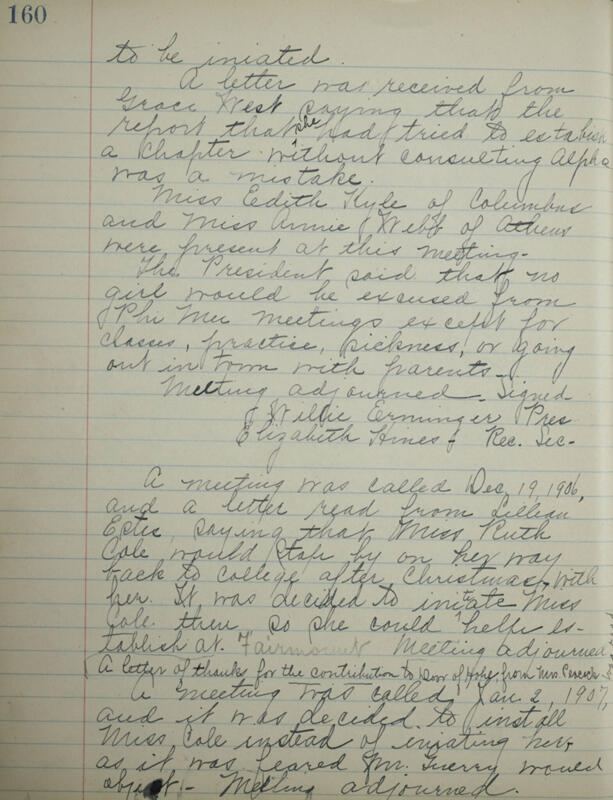 160
to be iniated.
A letter was received from
Grace West saying that the
report that she had tried to establish
a Chapter without consulting Alpha
was a mistake.
Miss Eedith Kyle of Columbus
and Miss Annie Webb of Athens
were present at this meeting.
The President said that no
girl would be excused from
Phi Mu meetings except for
classes, practice, sickness, or going
out in town with parents.
Meeting adjourned. Signed
Willie Erminger Pres
Elizabeth Hines - Rec. Sec.
A meeting was called Dec. 19, 1906,
and a letter read from Lillian
Estes, saying that Miss Ruth
Cole would stop by on her way
back to college after Christmas, with
her. It was decided to initate Miss
Cole then so she could help es-
tablish at Fairmount Meeting adjourned.
A letter of thanks for the contribution to Door of Hope from Mrs.
A meeting was called Jan. 2, 1907,
and it was decided to install
Miss Cole instead of iniating her
as it was feared Mr. Guerry would
object - Meeting adjourned.